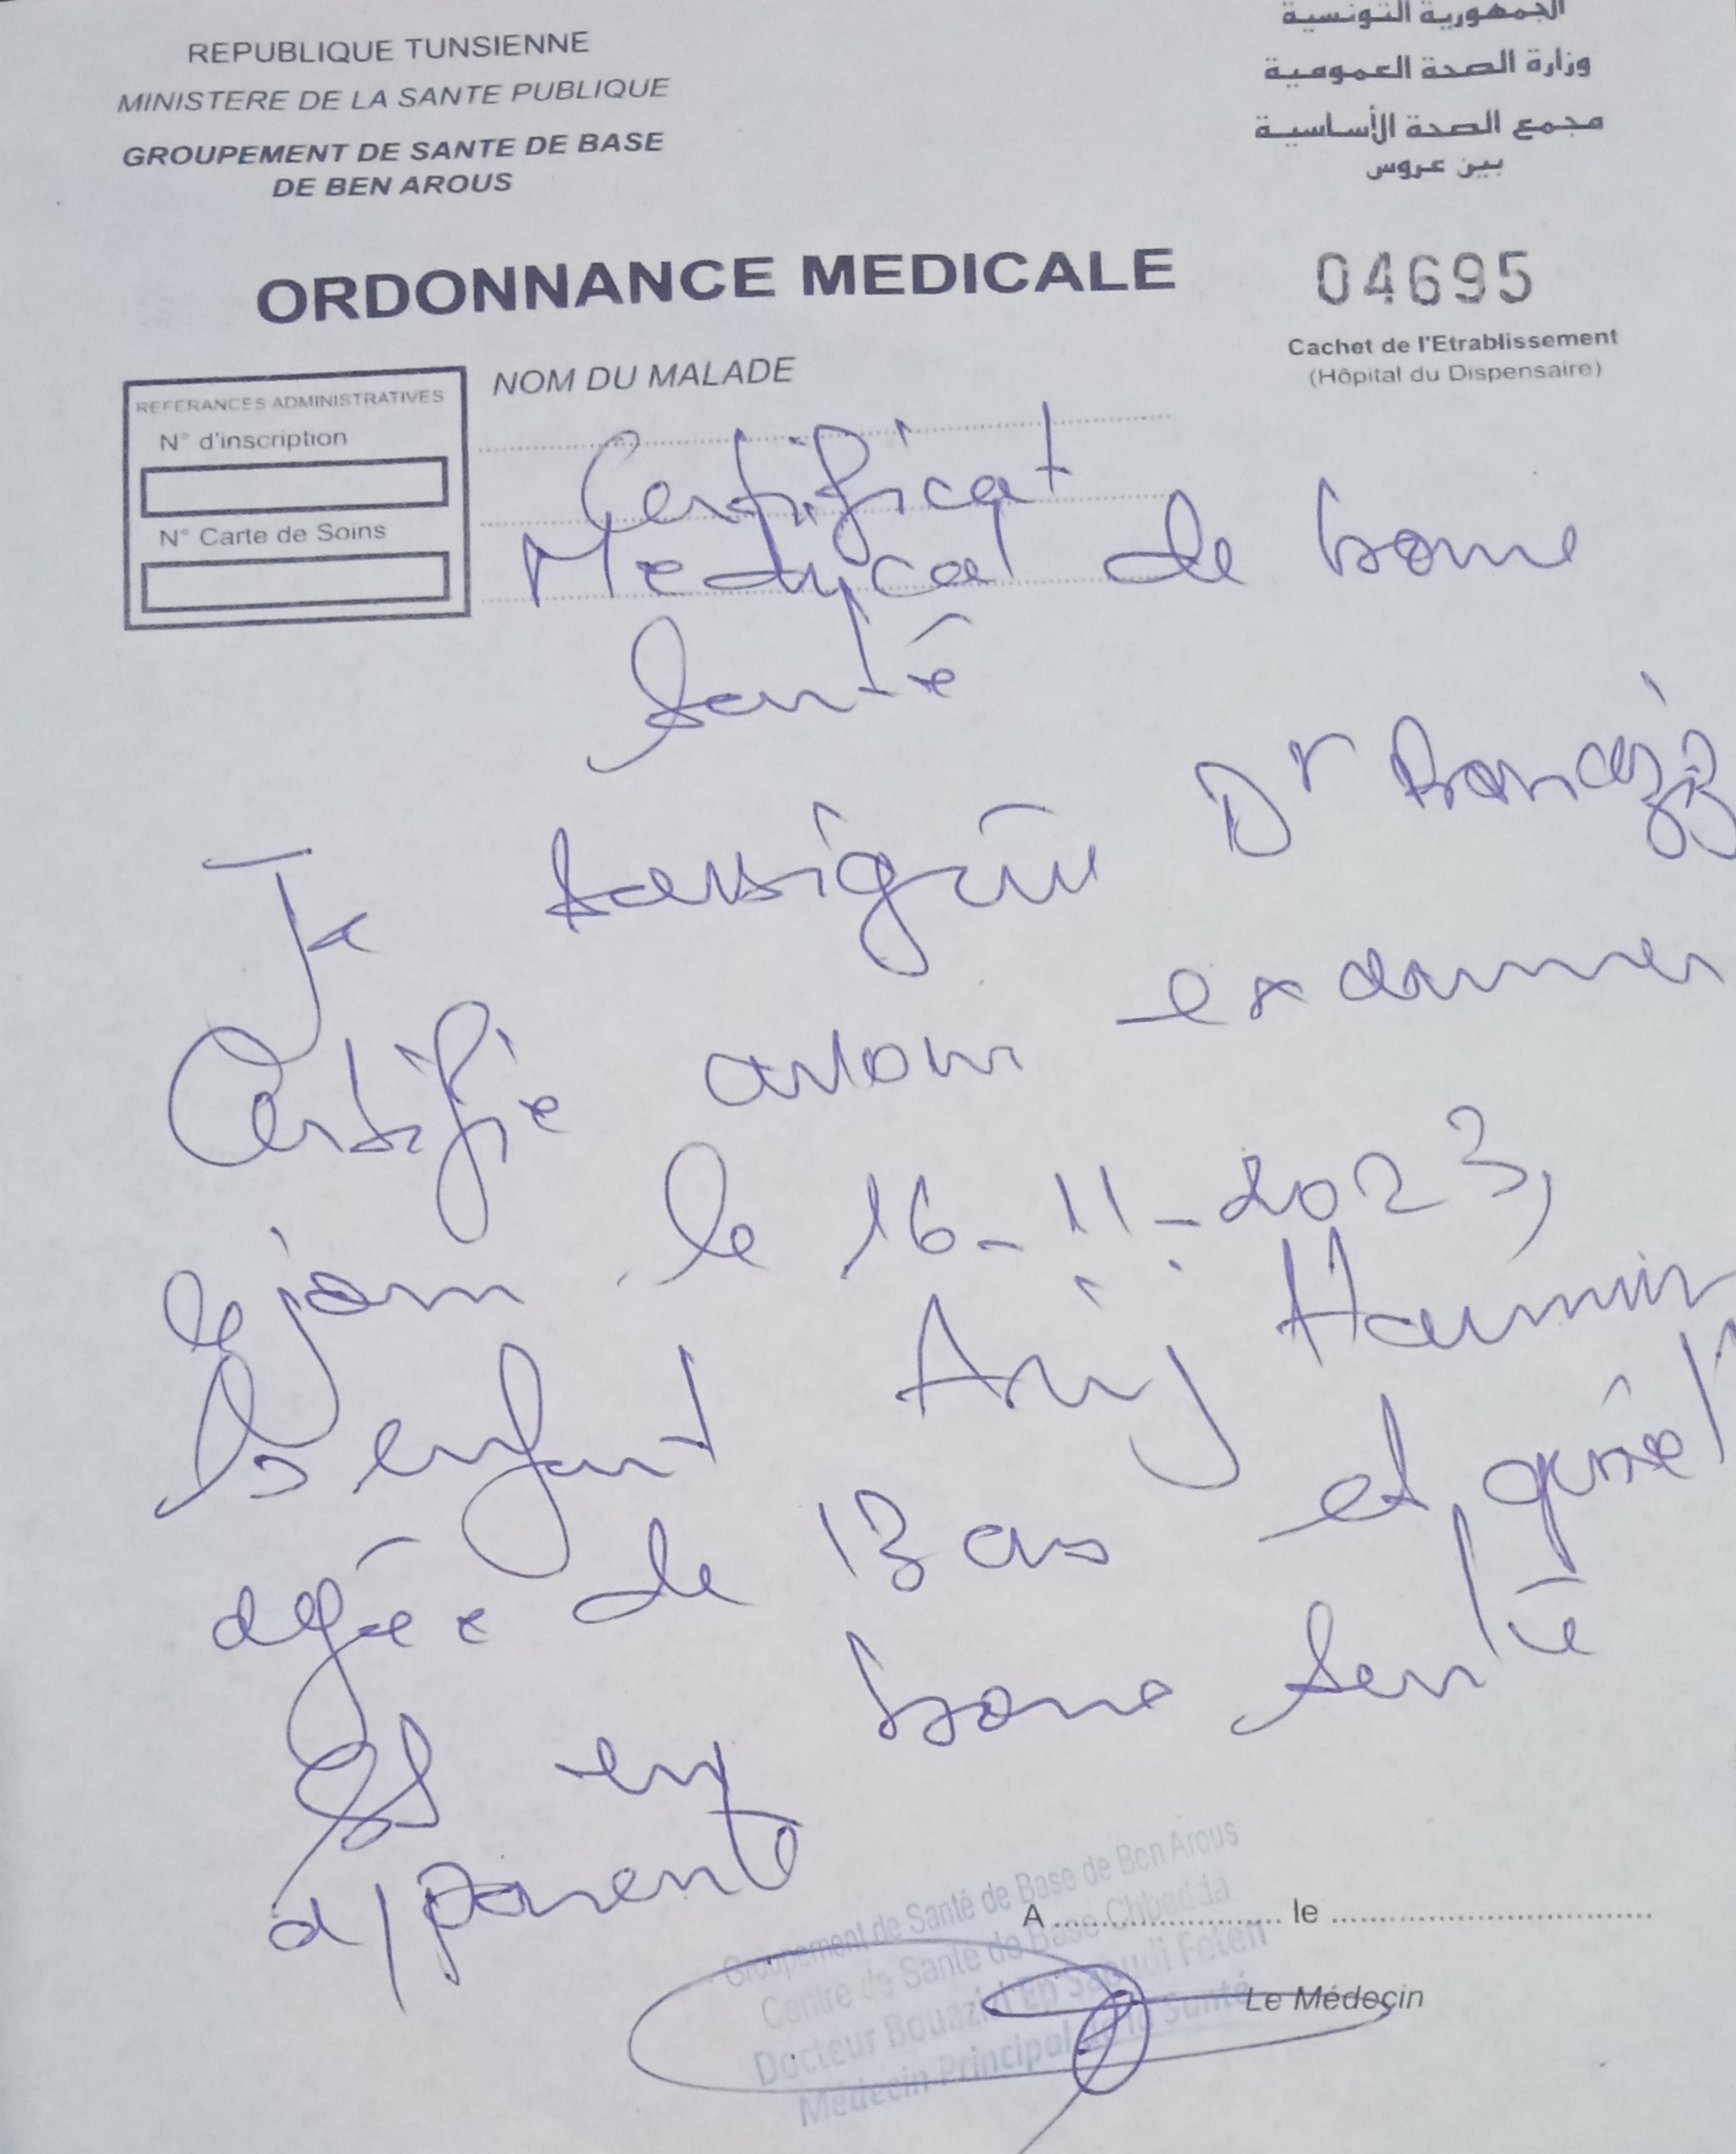 REPUBLIQUE TUNSIENNE
MINISTERE DE LA SANTE PUBLIQUE
GROUPEMENT DE SANTE DE BASE
DE BEN AROUS
الجمهورية التونسية
وزارة الصحة العمومية
مجمع الصحة الأساسية
ببن عروس
ORDONNANCE MEDICALE
04695
Cachet de l'Etrablissement
(Hôpital du Dispensaire)
REFERANCES ADMINISTRATIVES
N° d'inscription
N° Carte de Soins
NOM DU MALADE
Certificat
Medical de bonne
Santé
Je soussignée Dr
Certifie avoir examiner
le jour le 16-11-2023,
l'enfant Arij
agée de 13 ans et
est en bonne santé
apparente
A ........................ le ..................................
Le Médecin
Groupement de Santé de Base de Ben Arous
Centre de Santé de Base Chbedda
Docteur Bouazizi Ep Saoudi Feten
Médecin Principal de la Santé